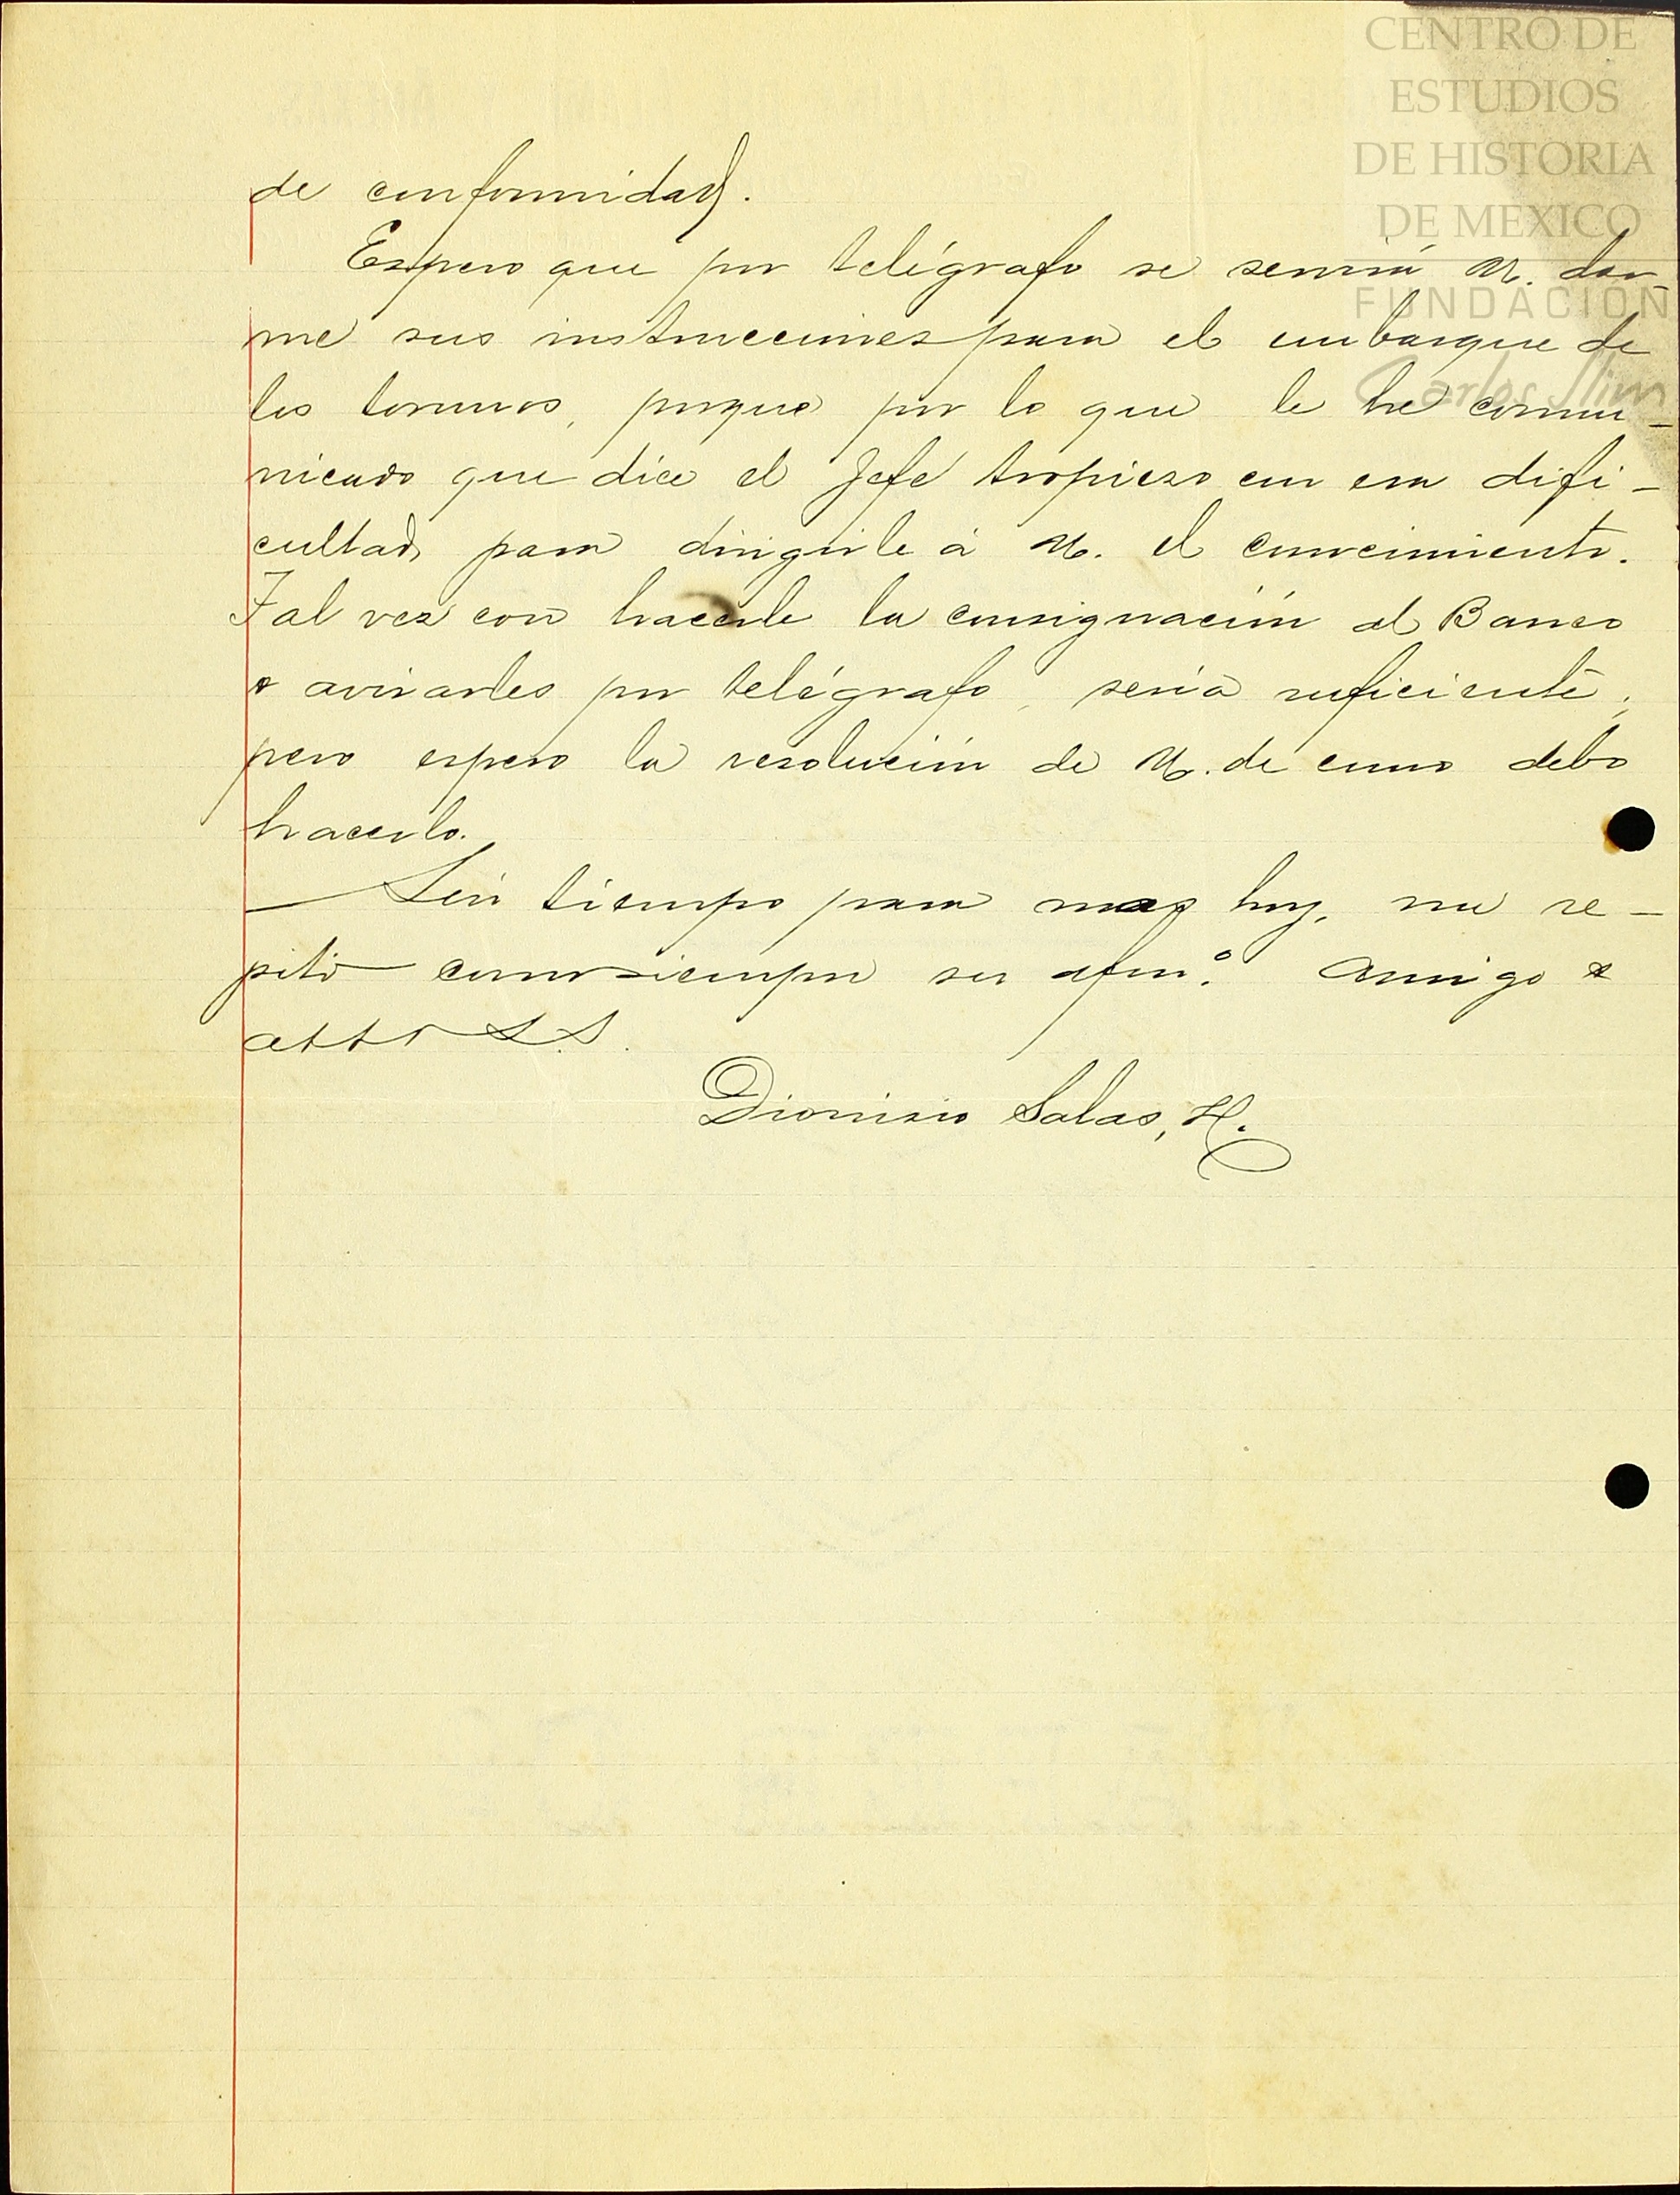 CENTRO DE
ESTUDIOS
DE HISTORIA
DE MEXICO
FUNDACIÓN
Carlos Slim
de conformidad.
Espero que por telégrafo se servirá U. dar-
me sus instrucciones para el embarque de
los , porque por lo que le he comu-
nicado que dice el Jefe tropiezo con esa difi-
cultad para dirigirle á U. el conocimiento.
Tal vez con hacerle la consignación al Banco
& avisarles por telégrafo, sería suficiente;
pero espero la resolución de U. de como debo
hacerlo.
Sin tiempo para mas hoy, me re-
pito como siempre su afmo. amigo &
atto S.S.
Dionisio Salas, H.